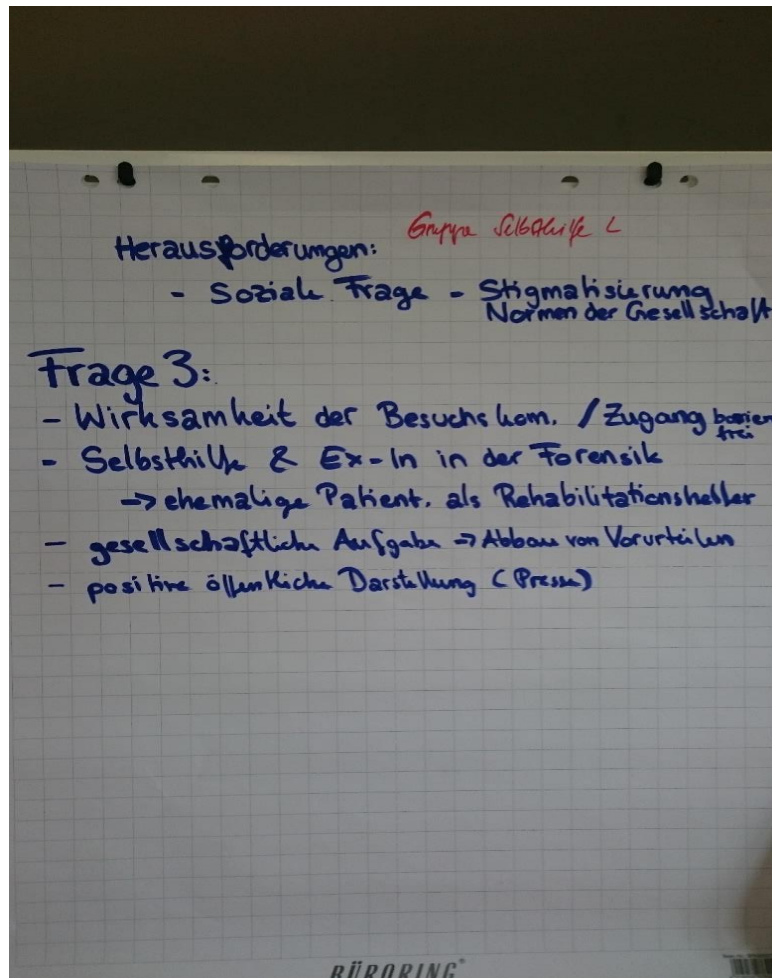 Gruppe Selbsthilfe L
Herausforderungen:
- Soziale Frage - Stigmatisierung
Normen der Gesellschaft
Frage 3:
- Wirksamkeit der Besuchskom. / Zugang barrien
frei
- Selbsthilfe & Ex-In in der Forensik
-> ehemalige Patient. als Rehabilitationshelfer
- gesellschaftliche Aufgabe -> Abbau von Vorurteilen
- positive öffentliche Darstellung (Presse)
BÜRORING®